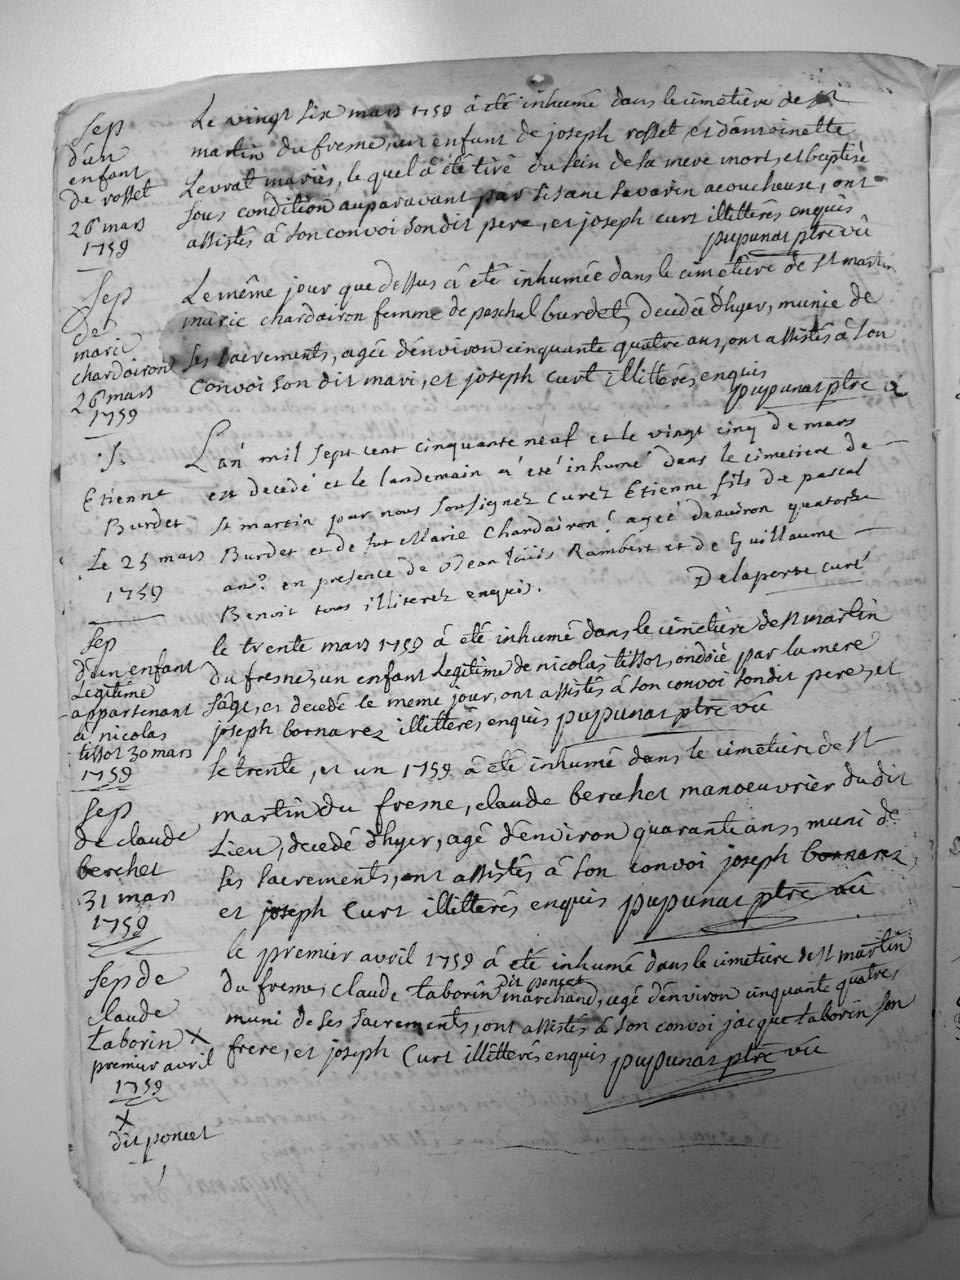 Sep
d'un
enfant
de rosset
26 mars
1759
Le vingt six mars 1759 â été inhumé dans le cimetière de st
martin du fresne, un enfant de joseph rosset et d'antoinette
Levrat mariés, le quel â été tiré du sein de la mere mort, et baptisé
sous condition auparavant par Susane Savarin acoucheuse, ont
assistés â son convoi son dit pere, et joseph curt illitterés enquis
pupunat ptre vic
Sep
de
marie
chardairon
26 mars
1759
Le même jour que dessus â été inhumée dans le cimetière de st martin
marie chardairon femme de paschal burdet, decedée d'hyer, munie de
ses sacrements, agée d'environ cinquante quatre ans, ont assistés â son
convoi son dit mari, et joseph curt illitterés enquis
pupunat ptre v
S.
Etienne
Burdet
Le 25 mars
1759
L'an mil sept cent cinquante neuf et le vingt cinq de mars
est decedé et le landemain a été inhumé dans le cimetiere de
st martin par nous soussignez Curez Etienne fils de pascal
Burdet et de fut Marie Chardairon agée d'environ quatorze
ans. en presence de Jean Louis Rambert et de Guillaume
Benoit tous illiterez enquis.
Delaporte curé
Sep
d'un enfant
Legitime
appartenant
â nicolas
tissot 30 mars
1759
le trente mars 1759 â été inhumé dans le cimetière de st martin
du fresne, un enfant Legitime de nicolas tissot, ondoié par la mere
sage, et decedé le meme jour, ont assistés â son convoi son dit pere, et
joseph bornarez illitterés enquis pupunat ptre vic
Sep
de claude
berchet
31 mars
1759
le trente, et un 1759 â été inhumé dans le cimetière de st
martin du fresne, claude berchet manoeuvrier du dit
Lieu, decedé d'hyer, agé d'environ quarante ans, muni de
ses sacrements, ont assistés â son convoi joseph bornarez,
et joseph Curt illitterés enquis pupunat ptre vic
Sep de
claude
taborin X
premier avril
1759
X
dit poncet
le premier avril 1759 â été inhumé dans le cimetière de st martin
du fresne, claude taborin dit poncet marchand, agé d'environ cinquante quatre,
muni de ses sacrements, ont assistés â son convoi jacque taborin son
frere, et joseph Curt illitterés enquis pupunat ptre vic